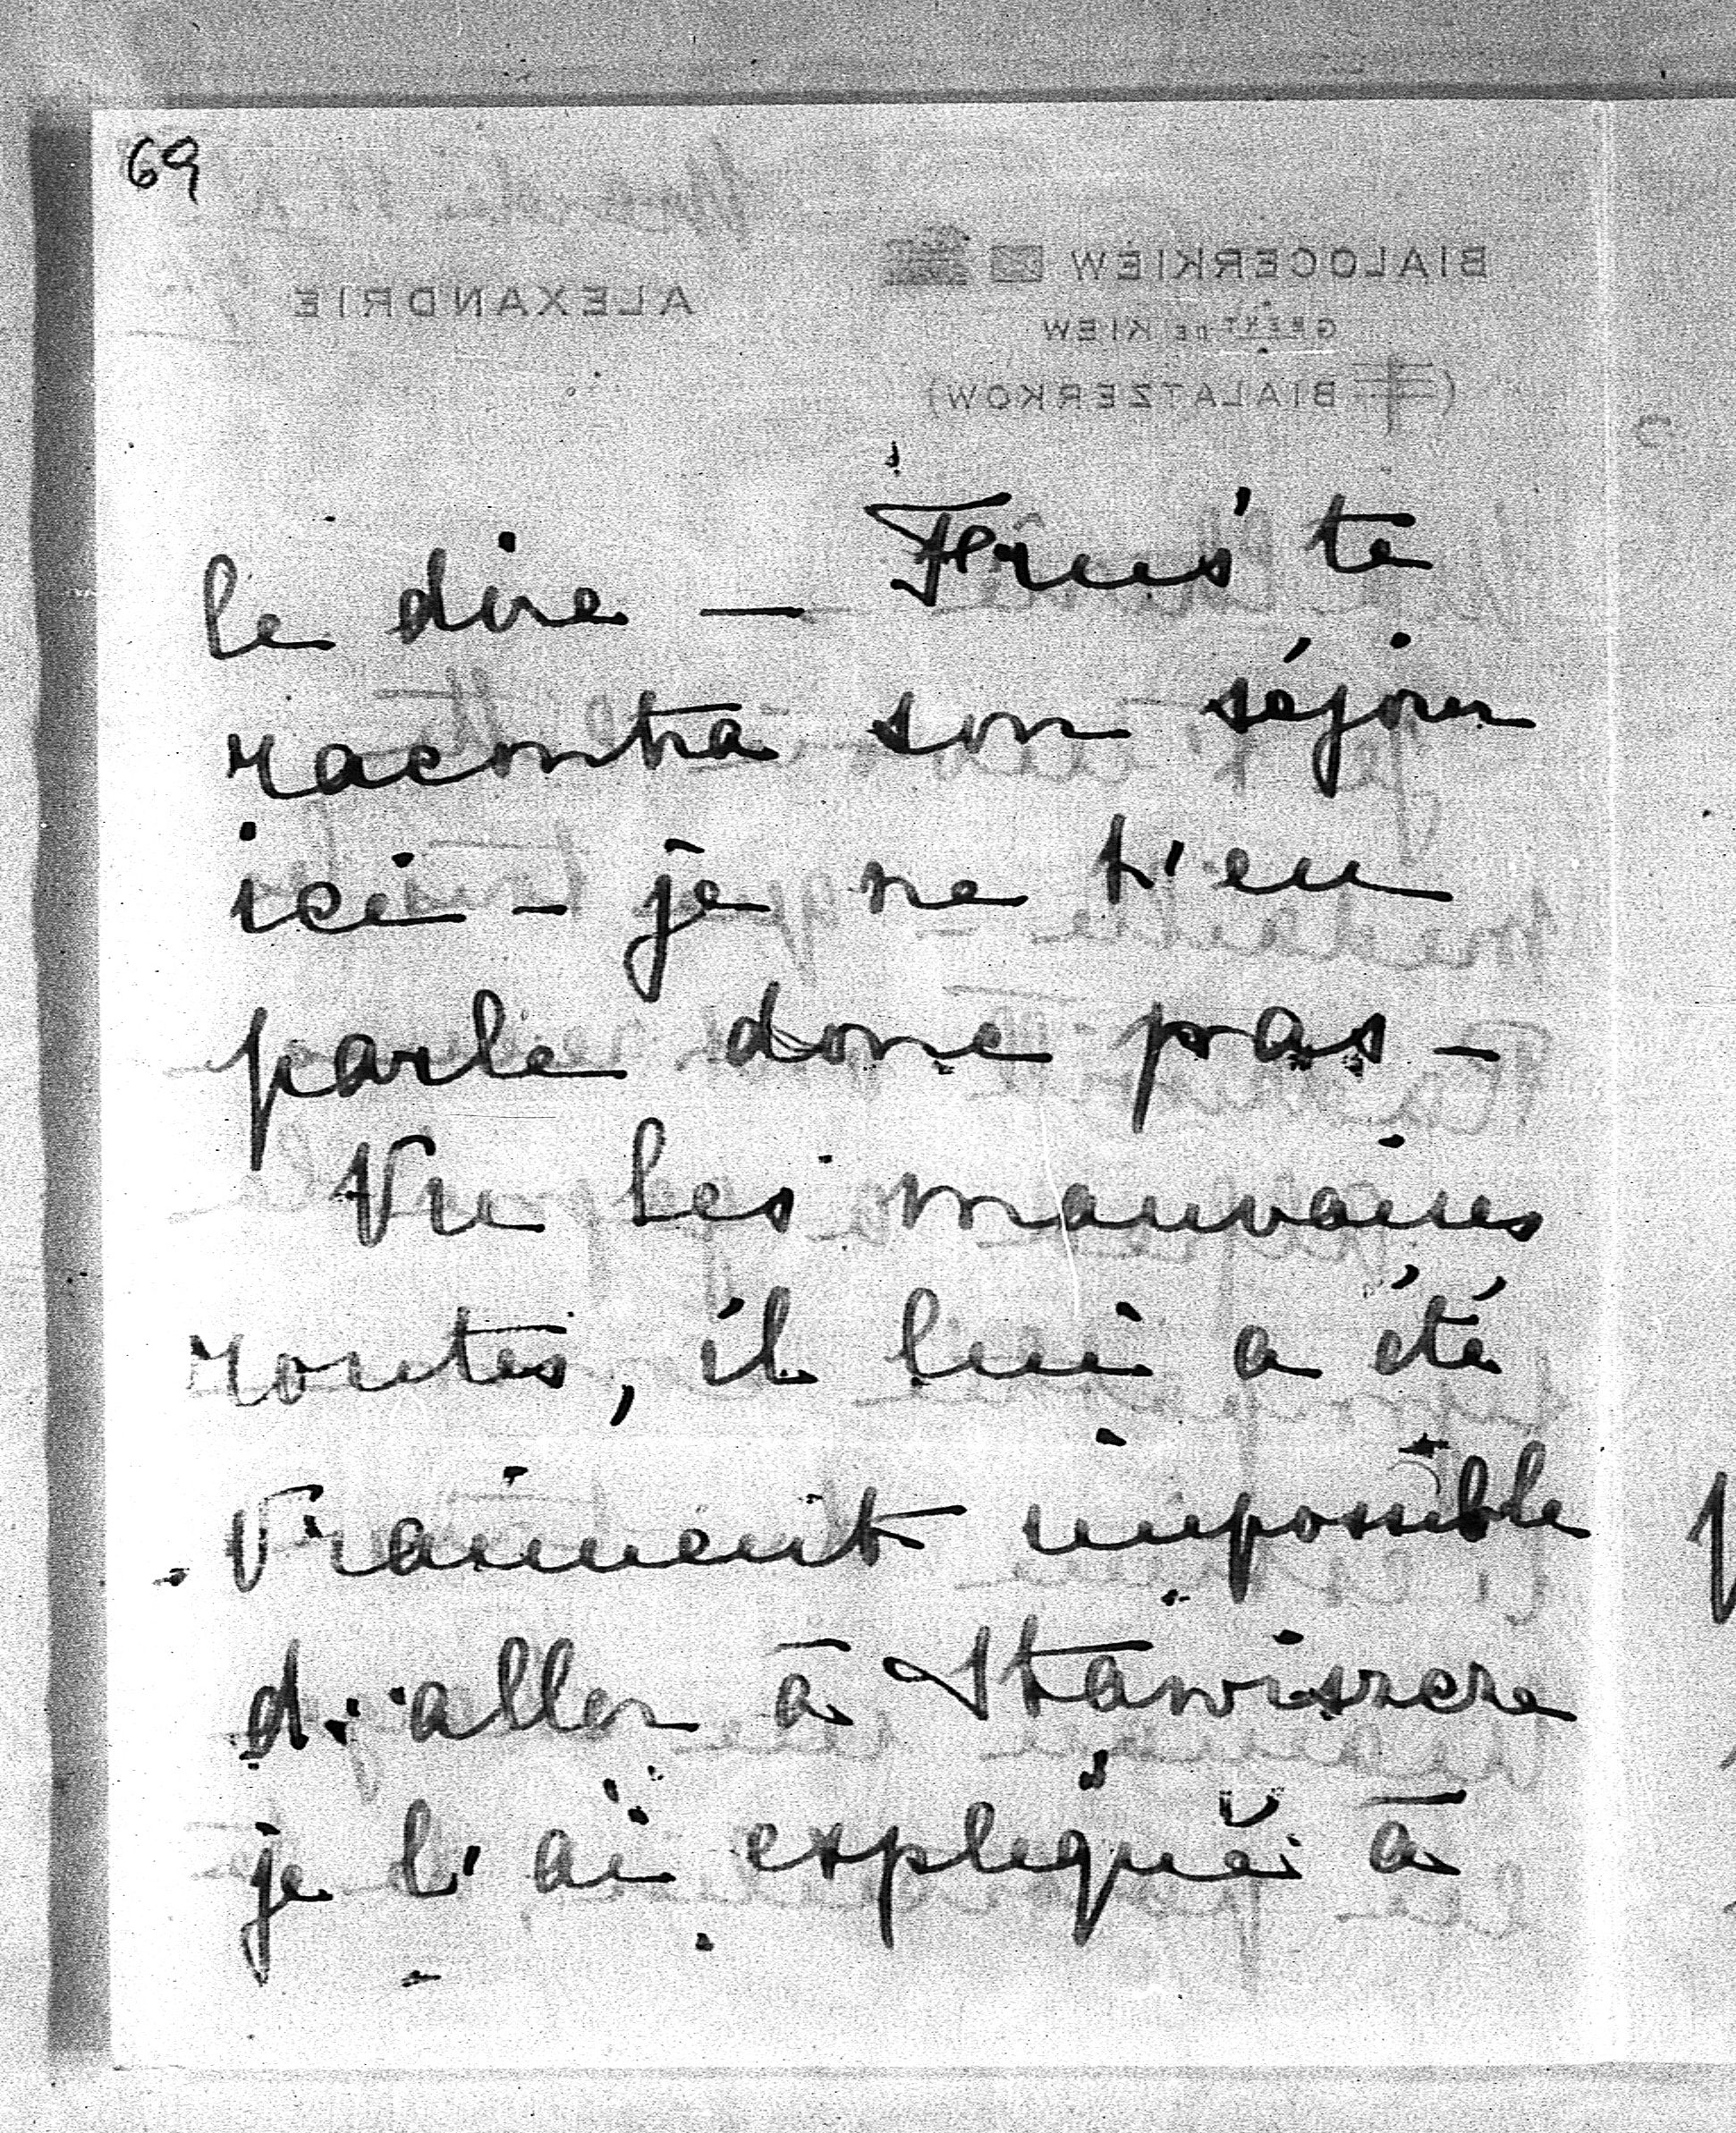 69
ALEXANDRIE
BIALOCERKIEW
GBERT DE KIEW
(BIALATZERKOW)
le dire — te
racontra son séjour
ici – je ne t'en
parle donc pas –
Vu les mauvaises
routes, il lui a été
vraiment impossible
d'aller à Stawiszcze
je l'ai expliqué à